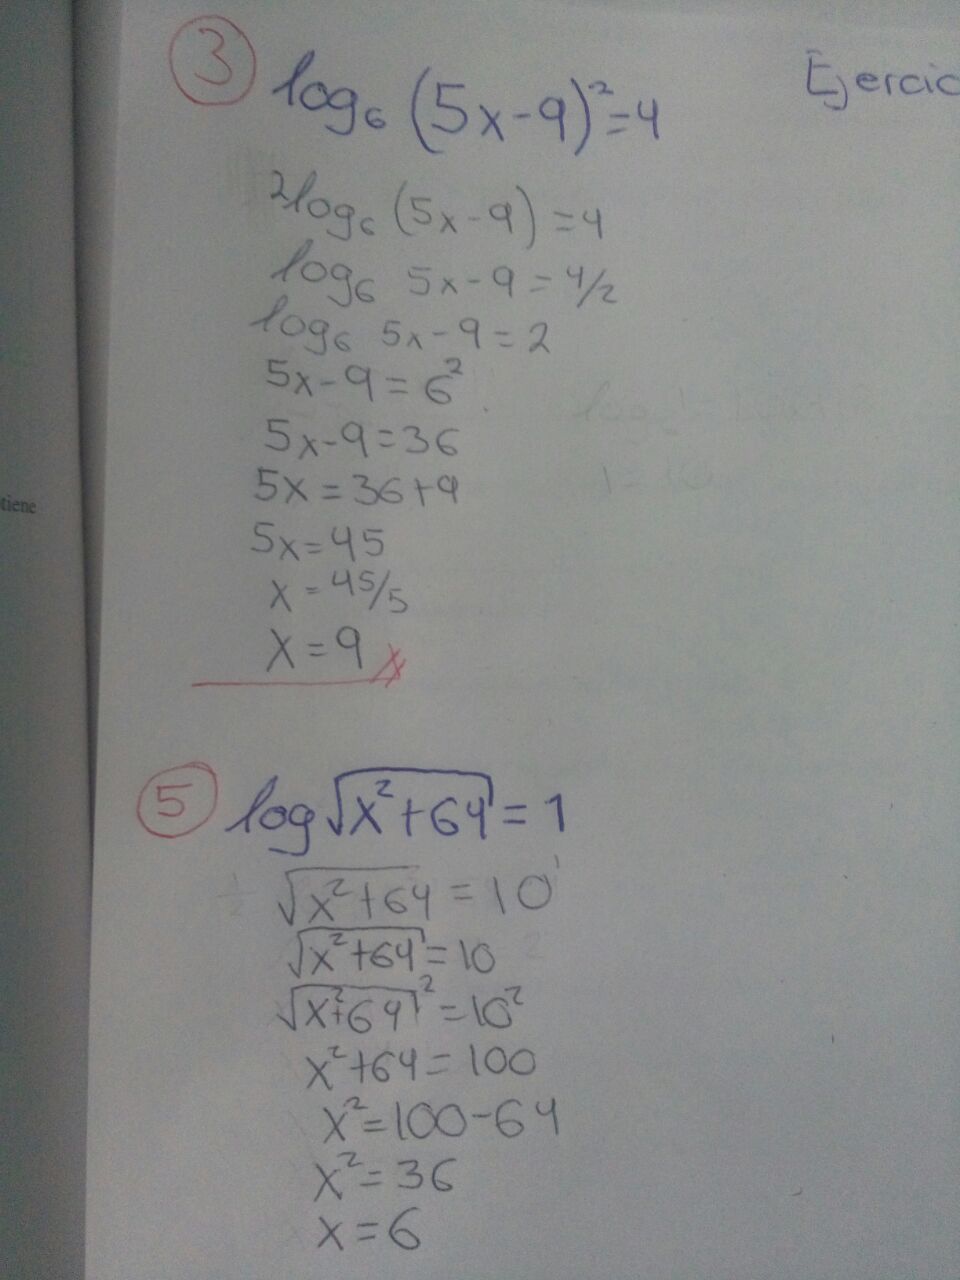 3 log₆ (5x-9)² = 4
Ejercic
2log₆ (5x-9) = 4
log₆ 5x-9 = 4/2
log₆ 5x-9 = 2
5x-9 = 6²
5x-9 = 36
5x = 36+9
tiene
5x = 45
x = 45/5
x = 9
5 log √x²+64 = 1
√x²+64 = 10¹
√x²+64 = 10
√x²+64² = 10²
x²+64 = 100
x² = 100-64
x² = 36
x = 6